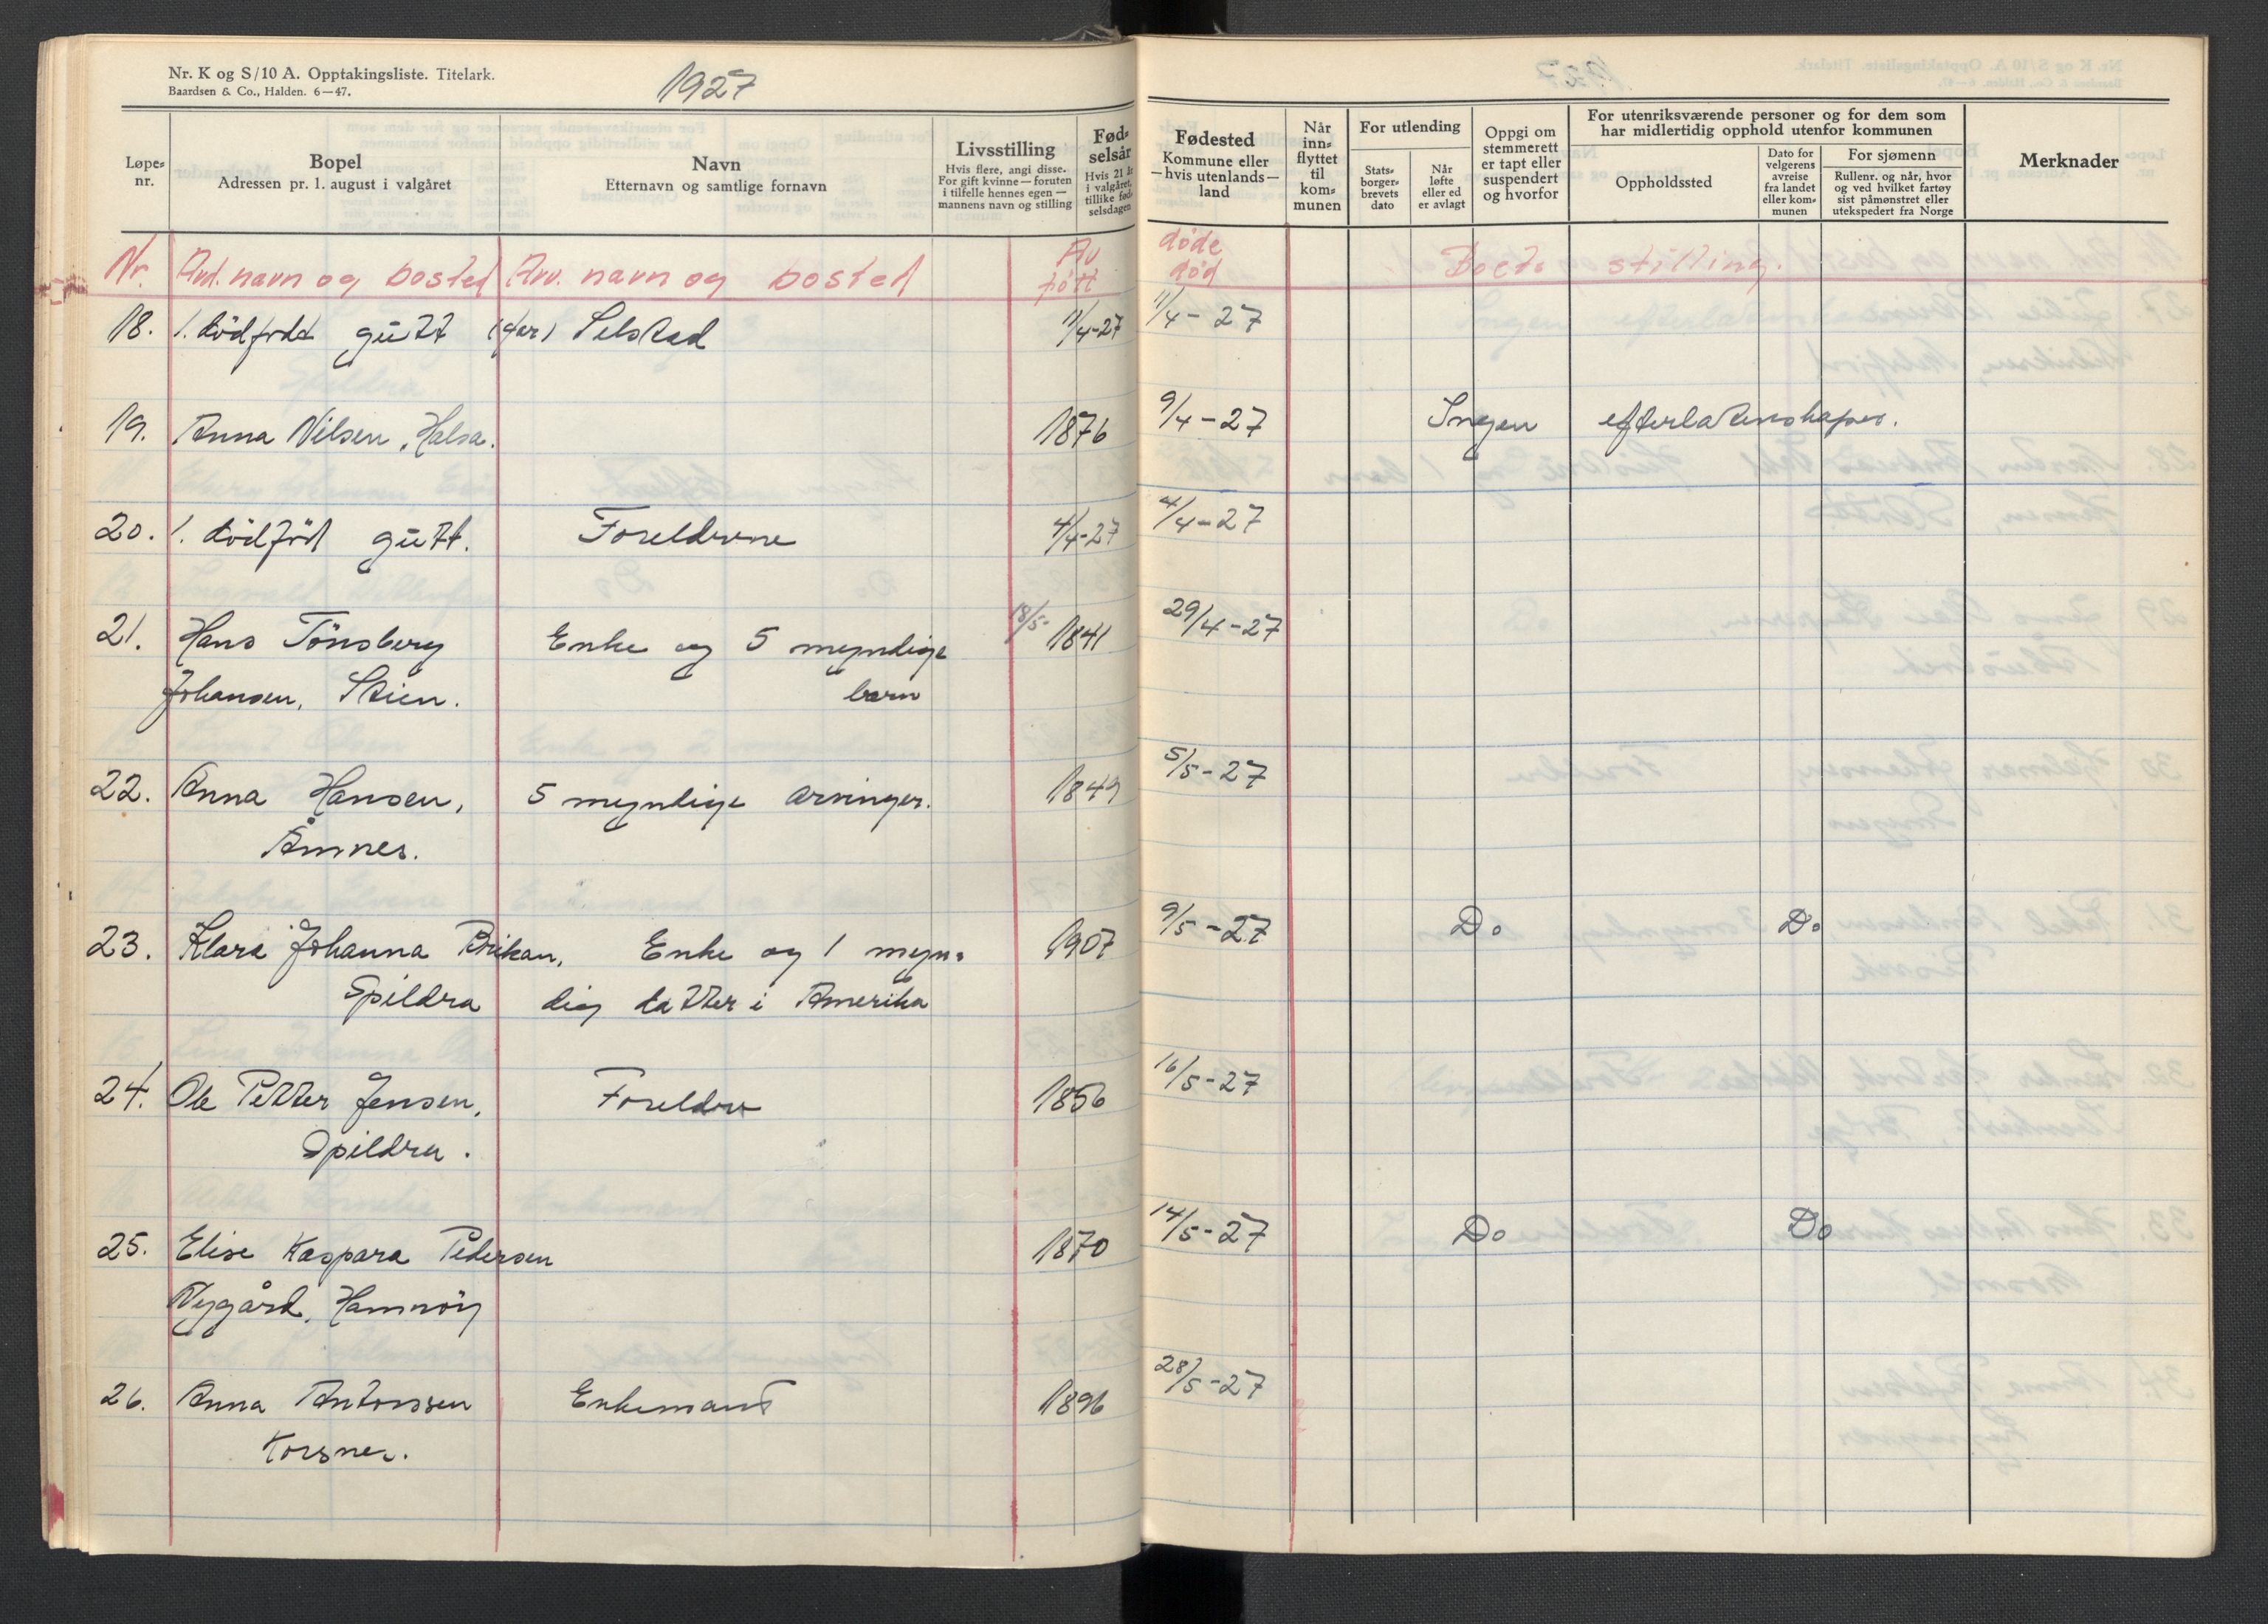 Nr. K og S/10 A. Opptakingsliste. Titelark.
Baardsen & Co., Halden. 6—47.
1927
Løpe-
nr.
Bopel
Adressen pr. 1. august i valgåret
Navn
Etternavn og samtlige fornavn
Livsstilling
Hvis flere, angi disse.
For gift kvinne — foruten
i tilfelle hennes egen —
mannens navn og stilling
Fød-
selsår
Hvis 21 år
i valgåret,
tillike fød-
selsdagen
Fødested
Kommune eller
— hvis utenlands —
land
Når
inn-
flyttet
til
kom-
munen
For utlending
Stats-
borger-
brevets
dato
Når
løfte
eller ed
er avlagt
Oppgi om
stemmerett
er tapt eller
suspendert
og hvorfor
For utenriksværende personer og for dem som
har midlertidig opphold utenfor kommunen
Oppholdssted
Dato for
velgerens
avreise
fra landet
eller kom-
munen
For sjømenn
Rullenr. og når, hvor
og ved hvilket fartøy
sist påmønstret eller
utekspedert fra Norge
Merknader
Nr. Avd. navn og bosted Arv. navn og bosted Av døde Boets stilling.
født død
18. 1. dödfödt gutt (far) Selstad 11/4-27 11/4-27
19. Anna Nilsen, Halsa. 1876 9/4-27 Ingen efterlatenskaper.
20. 1. dödföd gutt. Foreldrene 4/4-27 4/4-27
21. Hans Tönsberg Enke og 5 myndige 18/5- 1841 29/4-27
Johansen, Stien. barn
22. Anna Hansen, 5 myndige arvinger. 1849 5/5-27
Åmnes.
23. Klara Johanna Brikan, Enke og 1 myn- 1907 9/5-27 Do Do
Spildra dig datter i Amerika
24. Ole Petter Jensen, Foreldre 1856 16/5-27
Spildra.
25. Elise Kaspara Pedersen 1870 14/5-27 Do Do
Nygård, Hamnöy
26. Anna Antonssen Enkemand 1896 28/5-27
Korsnes.